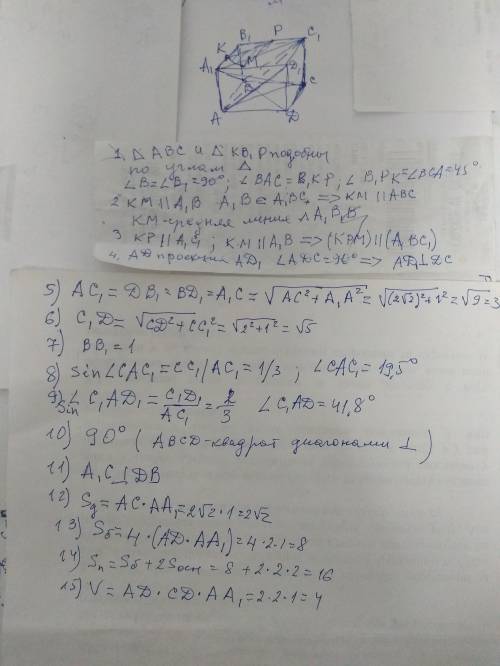 B₁ P C₁
K
A₁ M D₁
B C
A D
1. △ ABC и △ KB₁P подобны
по углам △
∠B=∠B₁=90°; ∠BAC=B₁KP; ∠B₁PK=∠BCA=45°
2. KM || A₁B A₁B ∈ A₁BC₁ => KM || ABC
KM-средняя линия △ A₁B₁B
3. KP || A₁C₁; KM || A₁B => (KPM) || (A₁BC₁)
4. AD проекция AD₁ ∠ADC=90° => AD₁⊥DC
5) AC₁ = DB₁ = BD₁ = A₁C = √AC²+A₁A² = √(2√2)²+1² = √9 = 3
6) C₁D = √CD²+CC₁² = √2²+1² = √5
7) BB₁ = 1
8) sin∠CAC₁ = CC₁/AC₁ = 1/3 ; ∠CAC₁ = 19,5°
9) sin ∠ C₁AD₁ = C₁D₁/AC₁ = 2/3 ∠C₁AD = 41,8°
10) 90° (ABCD-квадрат диагонами ⊥)
11) A₁C⊥DB
12) Sд = AC·AA₁ = 2√2·1 = 2√2
13) Sб = 4·(AD·AA₁) = 4·2·1 = 8
14) Sп = Sб + 2Sосн = 8 + 2·2·2 = 16
15) V = AD·CD·AA₁ = 2·2·1 = 4